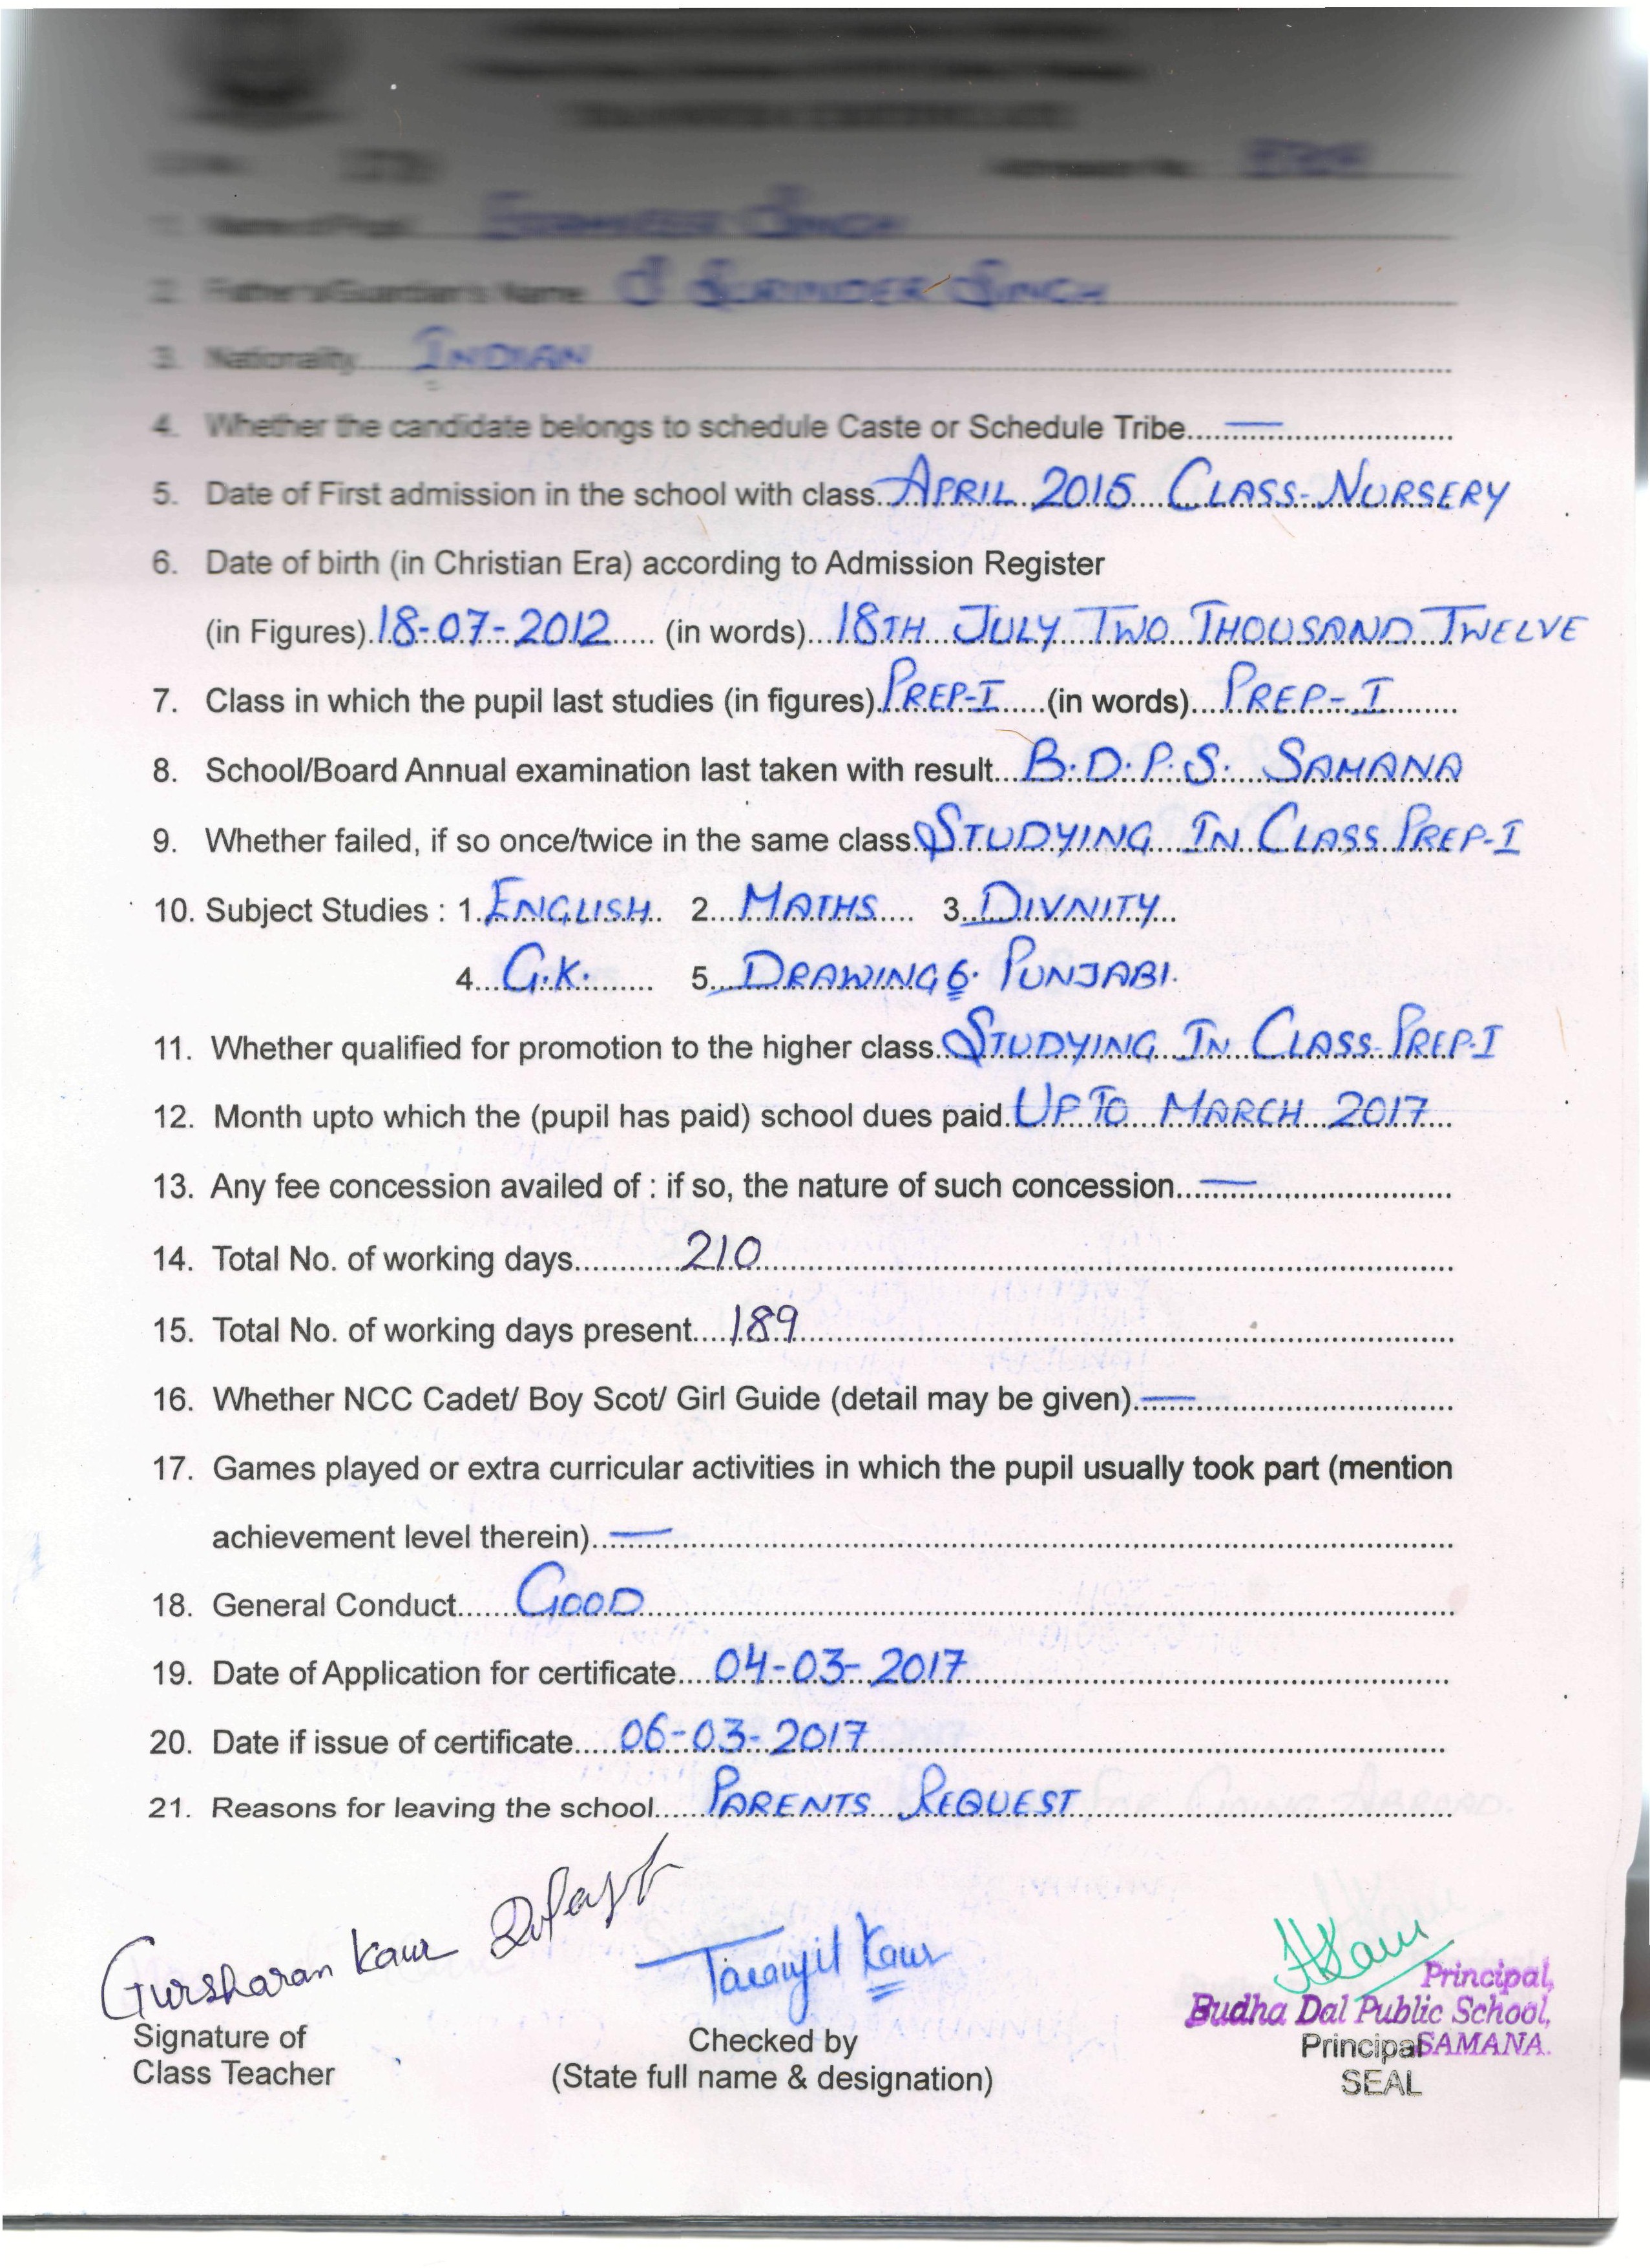 TRANSFER CERTIFICATE
Admission No.
1. Name of Pupil SINGH
2. Father's/Guardian's Name S SURINDER SINGH
3. Nationality INDIAN
4. Whether the candidate belongs to schedule Caste or Schedule Tribe.... —
5. Date of First admission in the school with class. APRIL 2015 CLASS-NURSERY
6. Date of birth (in Christian Era) according to Admission Register
(in Figures). 18-07-2012 (in words)... 18TH JULY TWO THOUSAND TWELVE
7. Class in which the pupil last studies (in figures) PREP-I (in words).... PREP-I
8. School/Board Annual examination last taken with result... B.D.P.S. SAMANA
9. Whether failed, if so once/twice in the same class. STUDYING IN CLASS PREP-I
10. Subject Studies : 1. ENGLISH 2... MATHS 3. DIVNITY
4... G.K. 5... DRAWING 6. PUNJABI.
11. Whether qualified for promotion to the higher class.. STUDYING IN CLASS PREP-I
12. Month upto which the (pupil has paid) school dues paid. UP TO MARCH 2017
13. Any fee concession availed of : if so, the nature of such concession.... —
14. Total No. of working days........... 210
15. Total No. of working days present.... 189
16. Whether NCC Cadet/ Boy Scot/ Girl Guide (detail may be given). —
17. Games played or extra curricular activities in which the pupil usually took part (mention
achievement level therein).. —
18. General Conduct...... GOOD
19. Date of Application for certificate.... 04-03-2017
20. Date if issue of certificate..... 06-03-2017
21. Reasons for leaving the school..... PARENTS REQUEST
Gursharan Kaur
Taranjit Kaur
HKaur
Principal,
Budha Dal Public School,
SAMANA.
Signature of
Class Teacher
Checked by
(State full name & designation)
Principal
SEAL